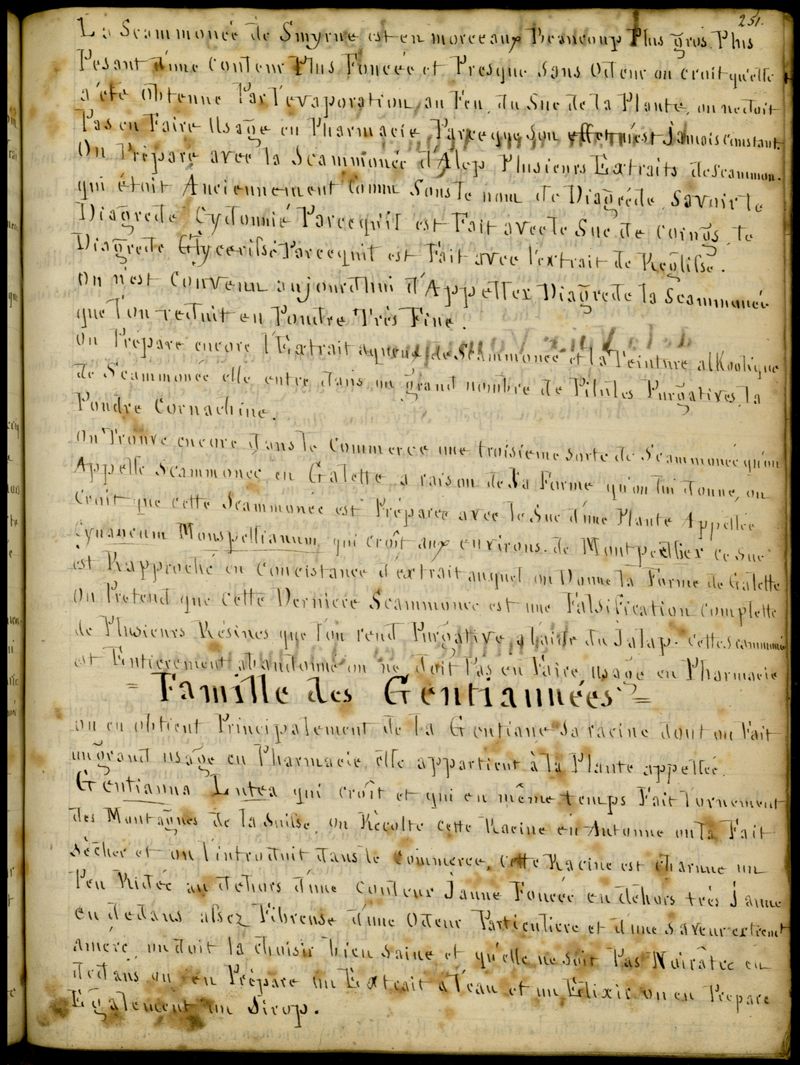 251.
La Scammonée de Smyrne est en morceaux Beaucoup Plus gros, Plus
Pesant d'une Couleur Plus Foncée et Presque Sans Odeur on croit qu'elle
a été Obtenue Par l'evaporation, au Feu, du Suc de la Plante, on ne doit
Pas en Faire Usage en Pharmacie Parceque Son effet n'est Jamais Constant.
On Prépare avec la Scammonée d'Alep Plusieurs Extraits de Scammon.
qui étoit Anciennement Connu Sous le nom de Diagréde, Savoir le
Diagrede Cydonnié Parcequ'il est Fait avec le Suc de Coings, le
Diagrede Glycerisé Parcequil est Fait avec l'extrait de Reglisse.
On n'est Convenu aujourdhui d'Appeller Diagrede la Scammonée
que l'on reduit en Poudre Très Fine.
On Prépare encore l'Extrait aqueux de Scammonée et la Teinture alkoolique
de Scammonée elle entre dans un grand nombre de Pilules Purgatives la
Poudre Cornachine.
On Trouve encore dans le Commerce une troisieme Sorte de Scammonée qu'on
Appelle Scammonée en Galette, a raison de Sa Forme qu'on lui donne, on
Croit que cette Scammonée est Préparée avec le Suc d'une Plante Appellée
Cynancum Monspelianum, qui croît aux environs de Montpellier ce Suc
est Rapproché en Concistance d'extrait auquel on Donne la Forme de Galette
On Pretend que Cette Derniere Scammonée est une Falsification Complette
de Plusieurs Résines que l'on rend Purgative, a l'aide du Jalap. Cette Scammonée
est Entierement abandonné on ne doit Pas en Faire Usage en Pharmacie
= Famille des Gentiannées =
on en obtient Principalement de la Gentiane Sa racine dont on Fait
un grand usage en Pharmacie, elle appartient à la Plante appellée.
Gentianna Lutea qui croît et qui en même temps Fait l'ornement
des Montagnes de la Suisse. On Récolte cette Racine en Automne on la Fait
Sécher et on l'introduit dans le Commerce, Cette Racine est charnue un
Peu Ridée au dehors d'une Couleur Jaune Foncée en dehors très Jaune
en dedans assez Fibreuse d'une Odeur Particuliere et d'une Saveur extremt
amère, on doit la choisir bien Saine et qu'elle ne Soit Pas Noirâtre en
dedans on en Prépare un Extrait à l'eau et un Elixir on en Prépare
Egalement un Sirop.